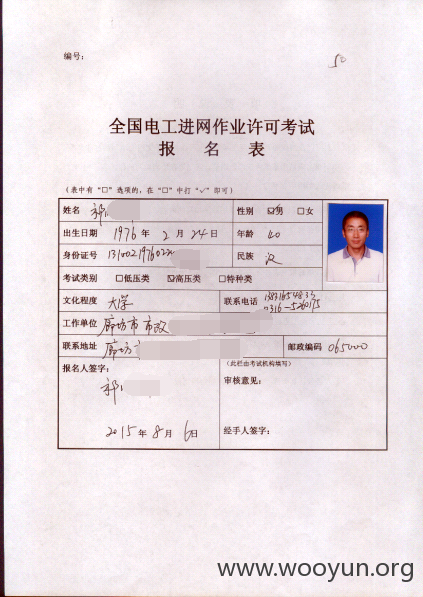 编号：
50
全国电工进网作业许可考试
报 名 表
（表中有“□”选项的，在“□”中打“√”即可）
姓名 祁 性别 ☑男 □女
出生日期 1976 年 2 月 24 日 年龄 40
身份证号 1310021976022 民族 汉
考试类别 □低压类 ☑高压类 □特种类
文化程度 大学 联系电话
0316-5260175
工作单位 廊坊市市政
联系地址 廊坊 邮政编码 065000
报名人签字： （此栏由考试机构填写）
祁 审核意见：
2015 年 8 月 6 日 经手人签字：
www.wooyun.org